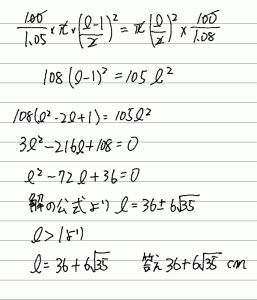 100/1.05 × π × (l-1/x)² = π(l/x)² × 100/1.08
108(l-1)² = 105l²
108(l²-2l+1) = 105l²
3l²-216l+108=0
l²-72l+36=0
解の公式より l=36±6√35
l>1より
l=36+6√35 答え 36+6√35 cm